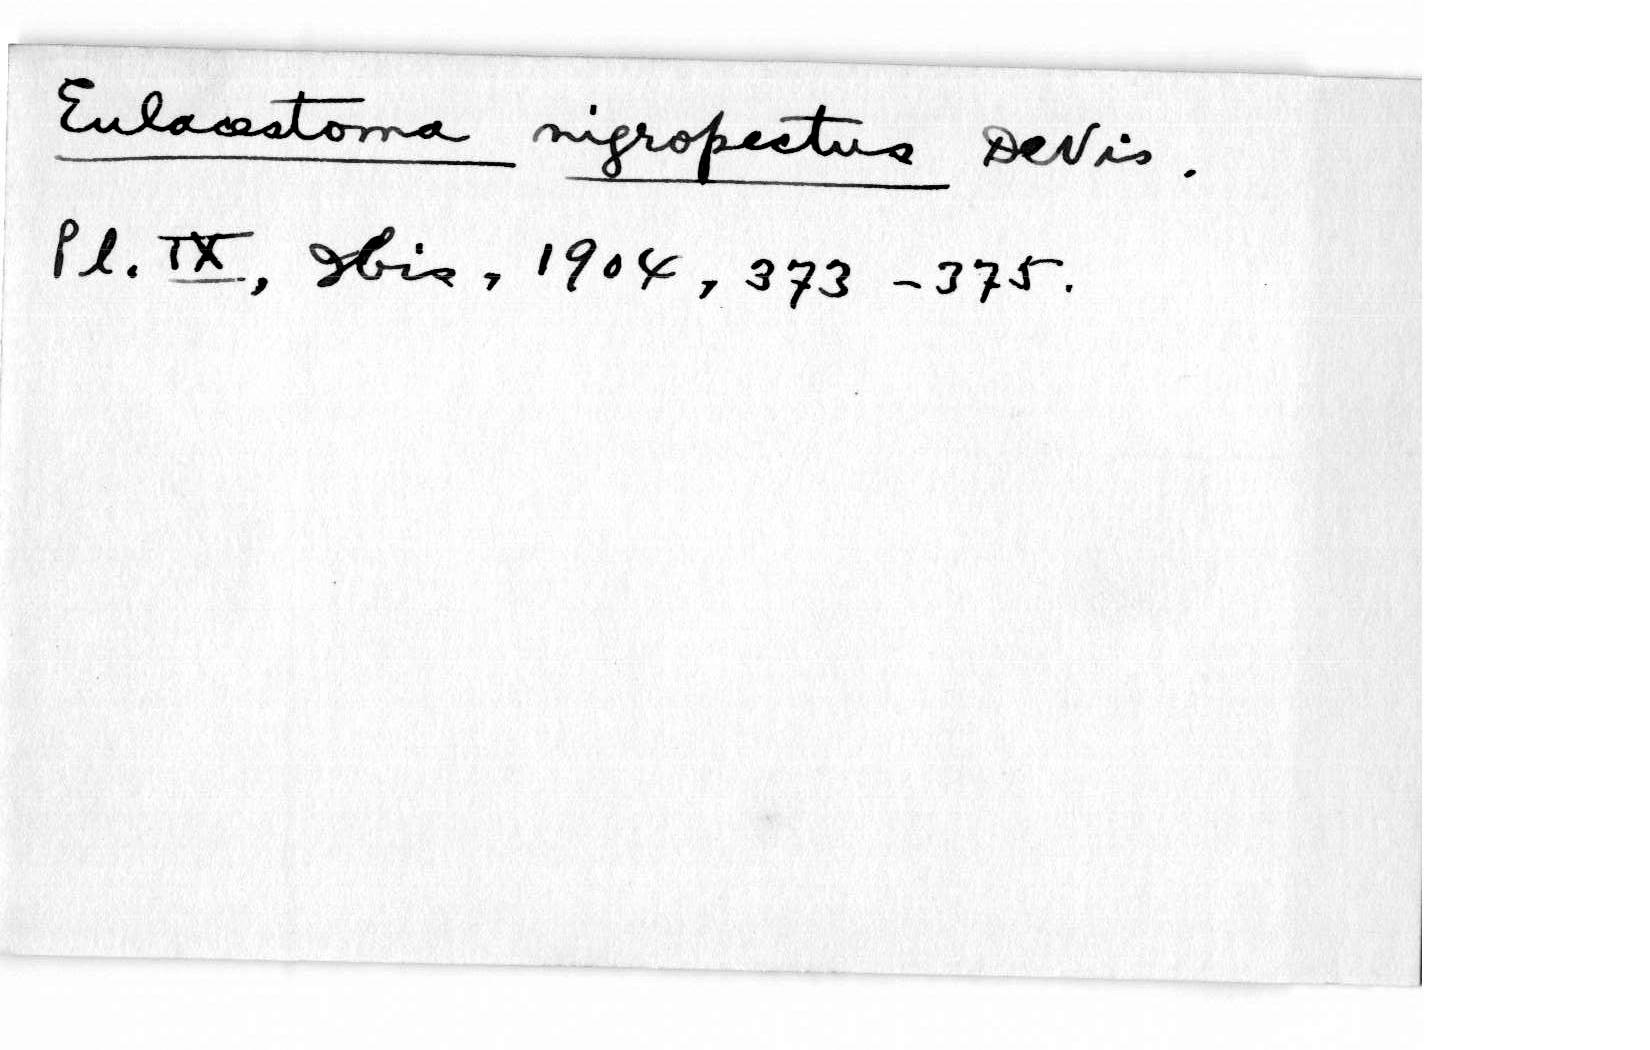 Eulacestoma nigropectus DeVis.
Pl. IX, Ibis, 1904, 373-375.